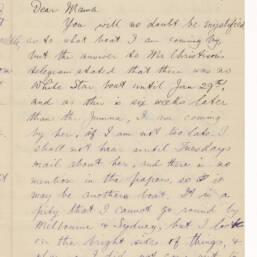 Dear Mama
You will no doubt be mystified
as to what boat I am coming by,
but the answer to Mr Christison's
telegram stated that there was no
White Star boat until Jan 29th,
and as this is six weeks later
than the Jumna, I am coming
by her, if I am not too late. I
shall not hear until Tuesdays
mail about her, and there is no
mention in the papers, so it
may be another boat. It is a
pity that I cannot go round by
Melbourne & Sydney, but I look
on the bright sides of things, &